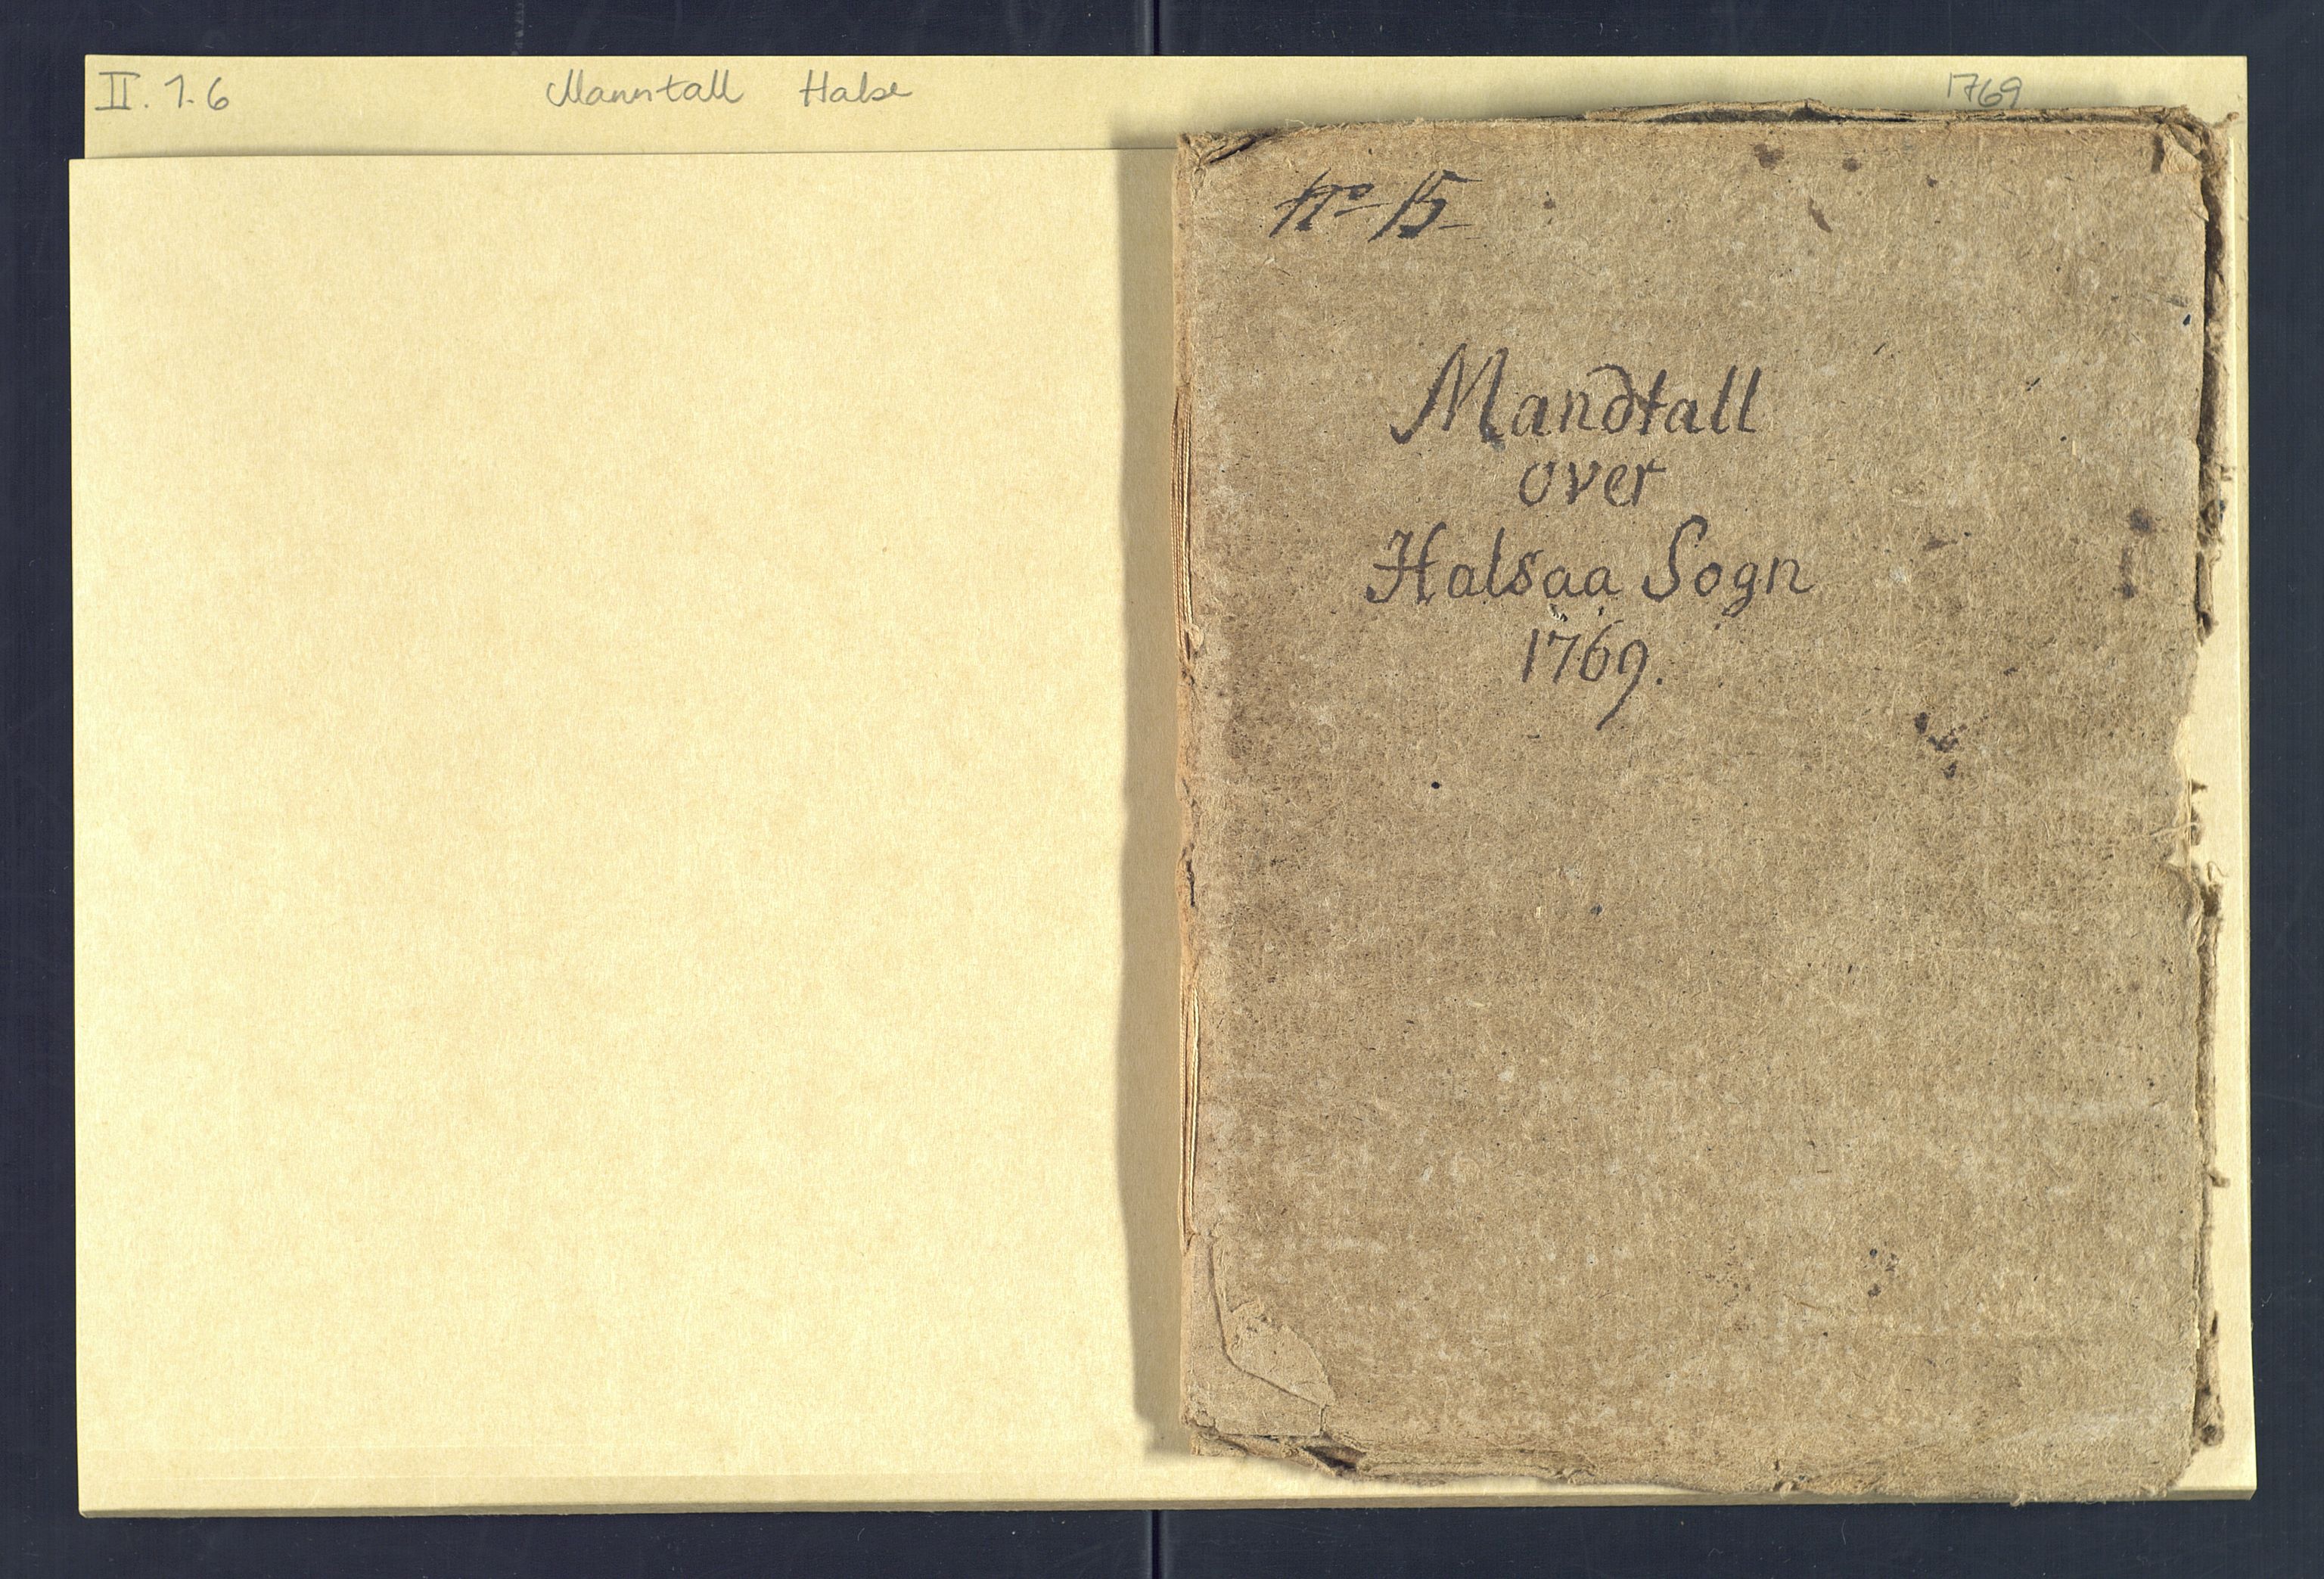 II. 1.6 Manntall Halse 1769
No 15
Mandtall
over
Halsaa Sogn
1769.